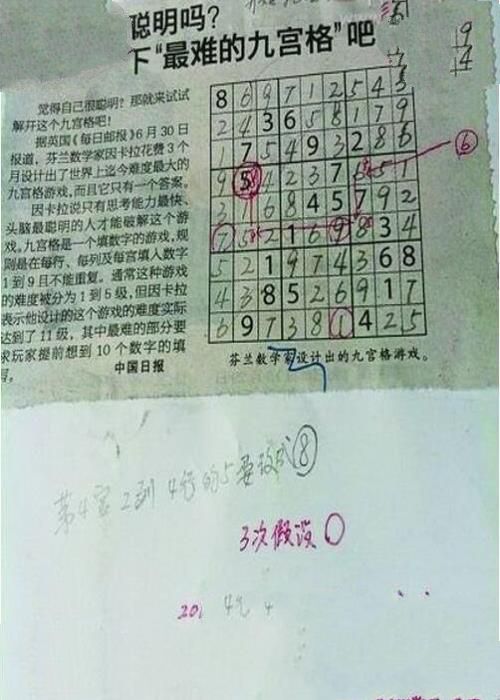 聪明吗?
下“最难的九宫格”吧
9
4
觉得自己很聪明?那就来试试
解开这个九宫格吧!
据英国《每日邮报》6月30日
报道,芬兰数学家因卡拉花费3个
月设计出了世界上迄今难度最大的
九宫格游戏,而且它只有一个答案。
因卡拉说只有思考能力最快、
头脑最聪明的人才能破解这个游
戏。九宫格是一个填数字的游戏,规
则是在每行、每列及每宫填入数字
1到9且不能重复。通常这种游戏
的难度被分为1到5级,但因卡拉
表示他设计的这个游戏的难度实际
达到了11级,其中最难的部分要
求玩家提前想到10个数字的填
写。
中国日报
8 6 9 7 1 2 5 4 3
2 4 3 6 5 8 1 7 9
1 7 5 4 9 3 2 8 6
9 5 4 2 3 7 6 5 1
3 1 6 8 4 5 7 9 2
7 5 2 1 6 9 8 3 4
5 2 1 9 7 4 3 6 8
4 3 8 5 2 6 9 1 7
6 9 7 3 8 1 4 2 5
6
芬兰数学家设计出的九宫格游戏。
第4宫2到4行的5要改成8
3次假设
201